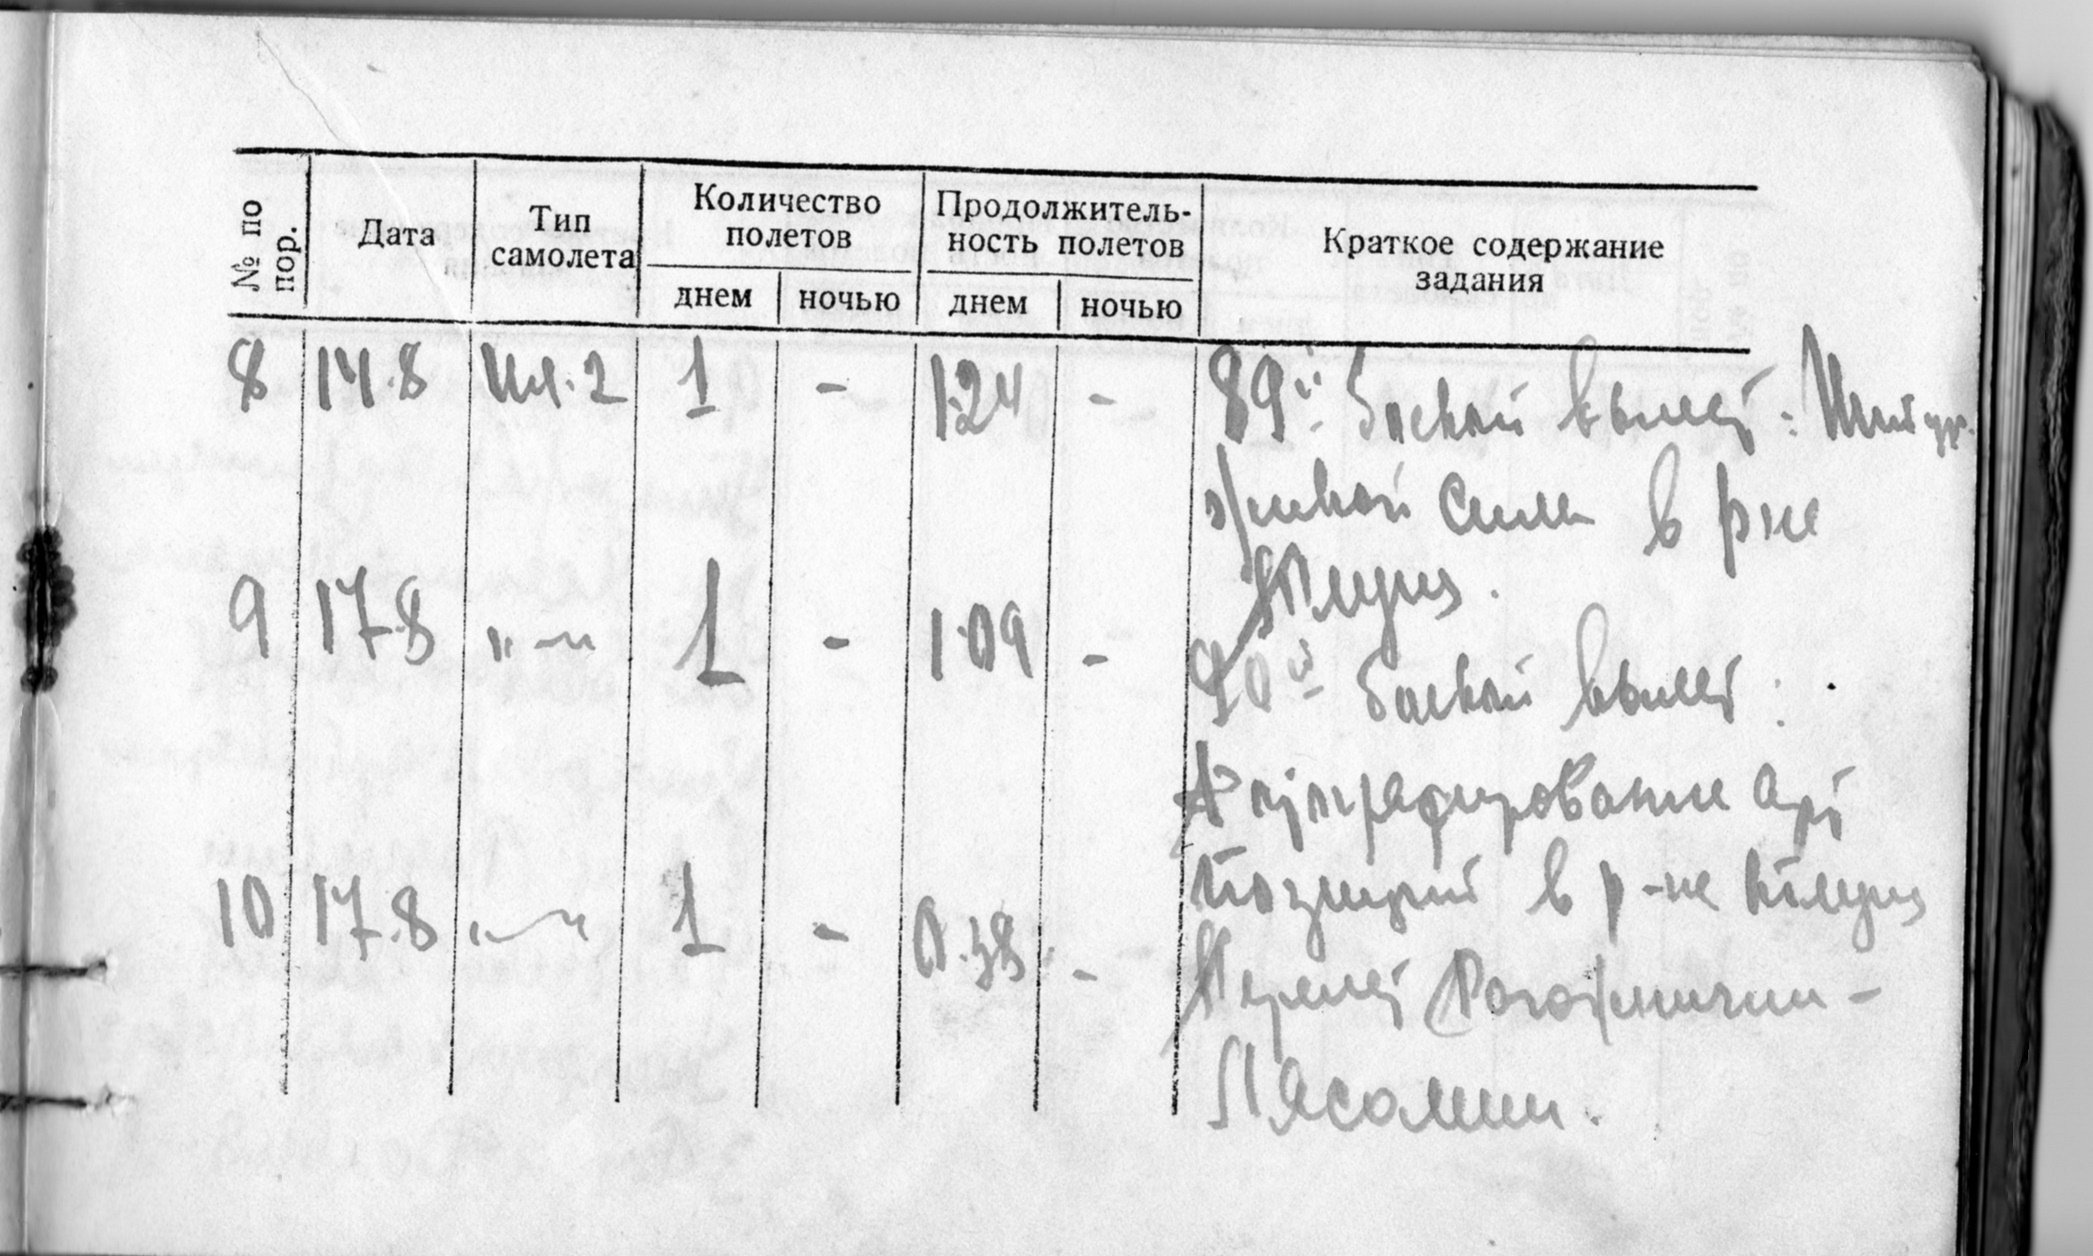 № по пор. Дата Тип самолета Количество полетов Продолжительность полетов Краткое содержание задания
днем ночью днем ночью
8 14.8 Ил-2 1 - 1.24 - 89й боевой вылет: Штур.
живой силы в р-не
9 17.8 "—" 1 - 1.09 - 90й боевой вылет:
Фотографирование арт
позиций в р-не
10 17.8 "—" 1 - 0.38 - Перелет Рогожничи -
Лясомин.